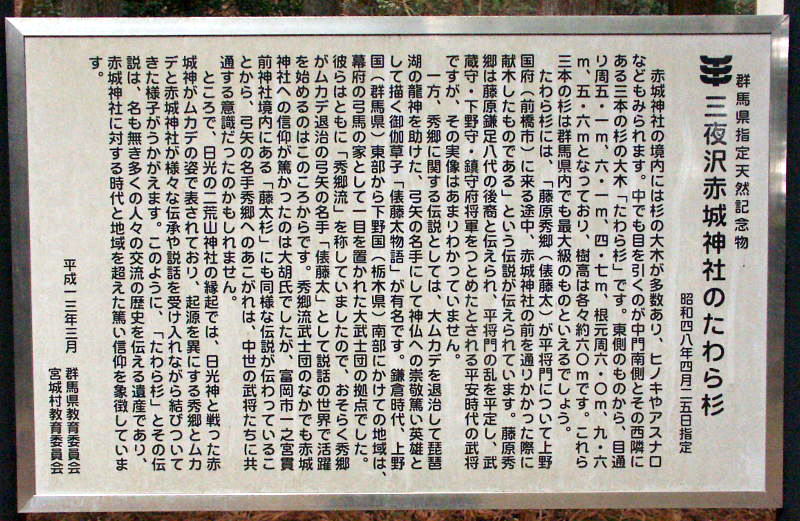 群馬県指定天然記念物
三夜沢赤城神社のたわら杉
昭和四八年四月二五日指定
赤城神社の境内には杉の大木が多数あり、ヒノキやアスナロ
などもみられます。中でも目を引くのが中門南側とその西隣に
ある三本の杉の大木「たわら杉」です。東側のものから、目通
り周五・一m、六・一m、四・七m、根元周六・〇m、九・六
m、五・六mとなっており、樹高は各々約六〇mです。これら
三本の杉は群馬県内でも最大級のものといえるでしょう。
たわら杉には、「藤原秀郷（俵藤太）が平将門について上野
国府（前橋市）に来る途中、赤城神社の前を通りかかった際に
献木したものである」という伝説が伝えられています。藤原秀
郷は藤原鎌足八代の後裔と伝えられ、平将門の乱を平定し、武
蔵守・下野守・鎮守府将軍をつとめたとされる平安時代の武将
ですが、その実像はあまりわかっていません。
一方、秀郷に関する伝説としては、大ムカデを退治して琵琶
湖の龍神を助けた、弓矢の名手にして神仏への崇敬篤い英雄と
して描く御伽草子「俵藤太物語」が有名です。鎌倉時代、上野
国（群馬県）東部から下野国（栃木県）南部にかけての地域は、
幕府の弓馬の家として一目を置かれた大武士団の拠点でした。
彼らはともに「秀郷流」を称していましたので、おそらく秀郷
がムカデ退治の弓矢の名手「俵藤太」として説話の世界で活躍
を始めるのはこのころからです。秀郷流武士団のなかでも赤城
神社への信仰が篤かったのは大胡氏でしたが、富岡市一之宮貫
前神社境内にある「藤太杉」にも同様な伝説が伝わっているこ
とから、弓矢の名手秀郷へのあこがれは、中世の武将たちに共
通する意識だったのかもしれません。
ところで、日光の二荒山神社の縁起では、日光神と戦った赤
城神がムカデの姿で表されており、起源を異にする秀郷とムカ
デと赤城神社が様々な伝承や説話を受け入れながら結びついて
きた様子がうかがえます。このように、「たわら杉」とその伝
説は、名も無き多くの人々の交流の歴史を伝える遺産であり、
赤城神社に対する時代と地域を超えた篤い信仰を象徴していま
す。
平成一三年三月
群馬県教育委員会
宮城村教育委員会